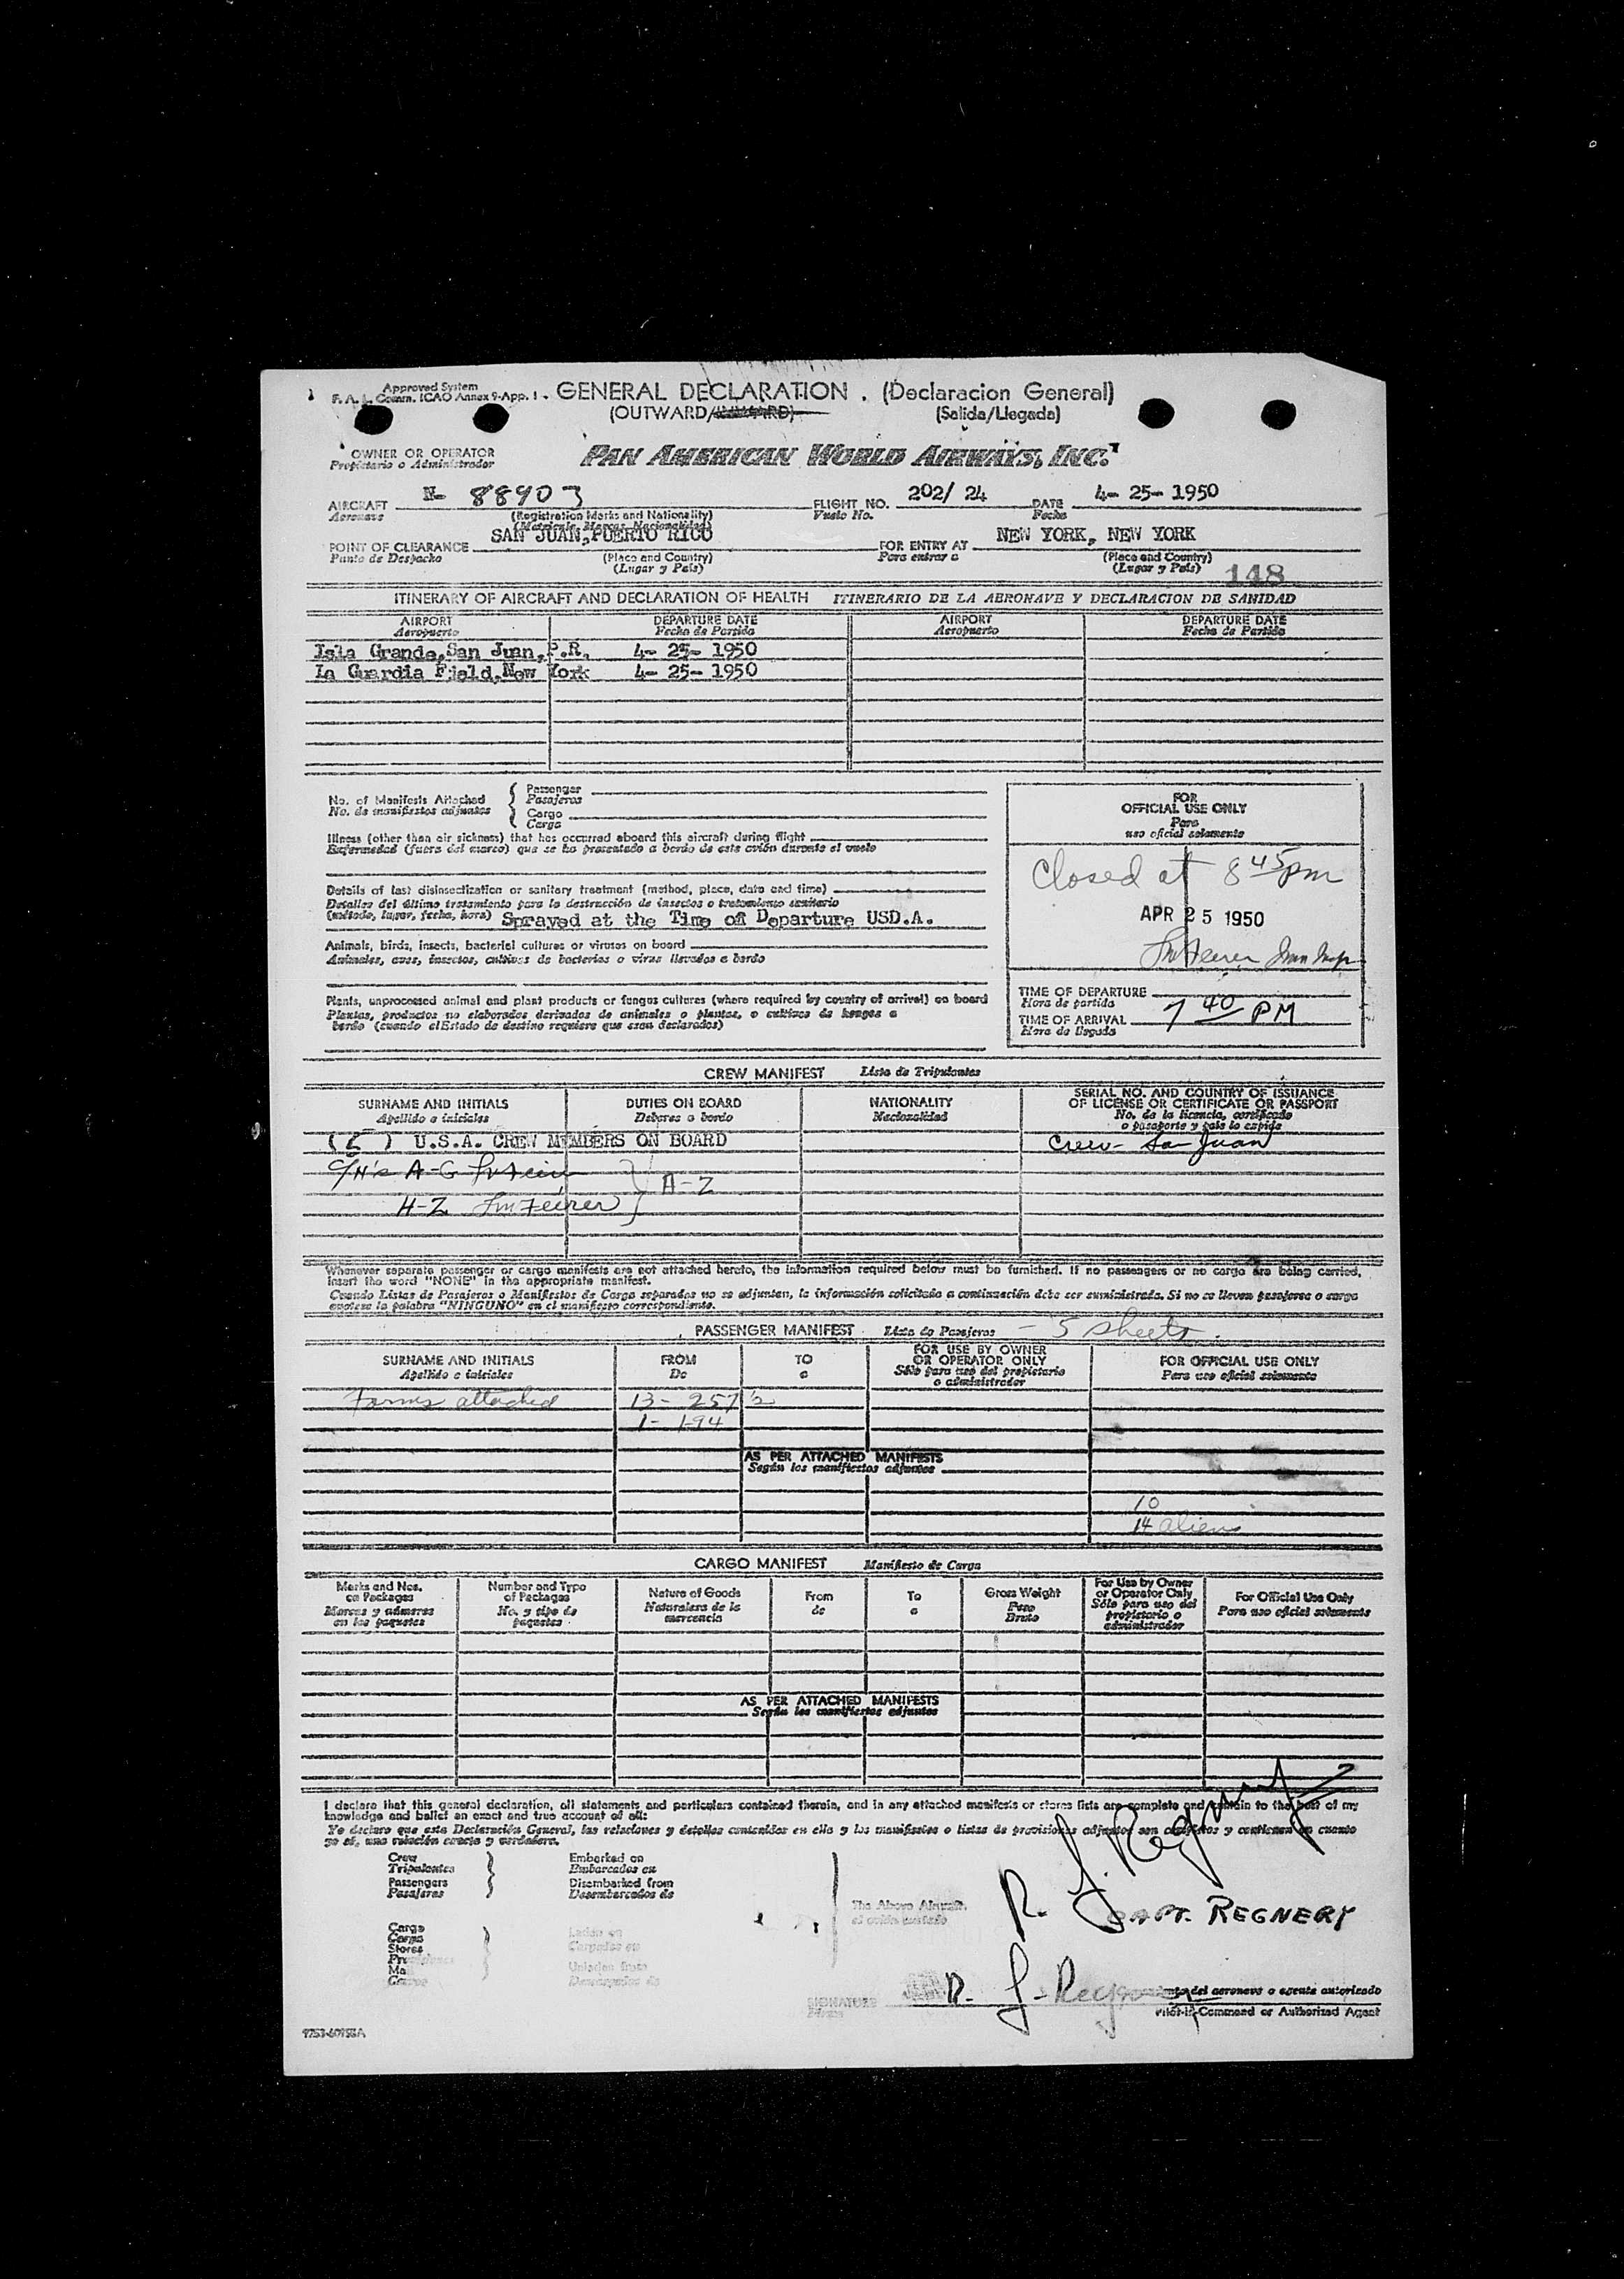 Approved System
F. A. L. Comm. ICAO Annex 9-App. 1 - GENERAL DECLARATION . (Declaracion General)
(OUTWARD/INWARD) (Salida/Llegada)
OWNER OR OPERATOR PAN AMERICAN WORLD AIRWAYS, INC.
Propietario o Administrador
AIRCRAFT N- 88903 FLIGHT NO. 202/ 24 DATE 4- 25- 1950
Aeronave (Registration Marks and Nationality) Vuelo No. Fecha
(Matricula, Marcas, Nacionalidad)
POINT OF CLEARANCE SAN JUAN, PUERTO RICO FOR ENTRY AT NEW YORK, NEW YORK
Punto de Despacho (Place and Country) Para entrar a (Place and Country)
(Lugar y País) (Lugar y País) 148
ITINERARY OF AIRCRAFT AND DECLARATION OF HEALTH ITINERARIO DE LA AERONAVE Y DECLARACION DE SANIDAD
AIRPORT DEPARTURE DATE AIRPORT DEPARTURE DATE
Aeropuerto Fecha de Partida Aeropuerto Fecha de Partida
Isla Grande, San Juan, P.R. 4- 25- 1950
La Guardia Field, New York 4- 25- 1950
No. of Manifests Attached Passenger
No. de manifiestos adjuntos Pasajeros
Cargo
Carga
FOR
OFFICIAL USE ONLY
Para
uso oficial solamente
Illness (other than air sickness) that has occurred aboard this aircraft during flight
Enfermedad (fuera del mareo) que se ha presentado a bordo de este avión durante el vuelo
Closed at 8 45 pm
Details of last disinsectization or sanitary treatment (method, place, date and time)
Detalles del último tratamiento para la destrucción de insectos o tratamiento sanitario
(método, lugar, fecha, hora) Sprayed at the Time of Departure USD.A.
APR 25 1950
Animals, birds, insects, bacterial cultures or viruses on board
Animales, aves, insectos, cultivos de bacterias o virus llevados a bordo
Plants, unprocessed animal and plant products or fungus cultures (where required by country of arrival) on board
Plantas, productos no elaborados derivados de animales o plantas, o cultivos de hongos a
bordo (cuando el Estado de destino requiera que sean declarados)
TIME OF DEPARTURE
Hora de partida
TIME OF ARRIVAL 7 40 PM
Hora de llegada
CREW MANIFEST Lista de Tripulantes
SURNAME AND INITIALS DUTIES ON BOARD NATIONALITY SERIAL NO. AND COUNTRY OF ISSUANCE
OF LICENSE OR CERTIFICATE OR PASSPORT
Apellido e iniciales Deberes a bordo Nacionalidad No. de la licencia, certificado
o pasaporte y país lo expide
U.S.A. CREW MEMBERS ON BOARD Crew- San Juan
A-G
A-Z
H-Z
Whenever separate passenger or cargo manifests are not attached hereto, the information required below must be furnished. If no passengers or no cargo are being carried,
insert the word "NONE" in the appropriate manifest.
Cuando Listas de Pasajeros o Manifiestos de Carga separados no se adjuntan, la información solicitada a continuación debe ser suministrada. Si no se llevan pasajeros o carga
anótese la palabra "NINGUNO" en el manifiesto correspondiente.
PASSENGER MANIFEST Lista de Pasajeros - 5 sheets.
SURNAME AND INITIALS FROM TO FOR USE BY OWNER
OR OPERATOR ONLY FOR OFFICIAL USE ONLY
Apellido e iniciales De a Sólo para uso del propietario
o administrador Para uso oficial solamente
Forms attached 13- 257's
1- I-94
AS PER ATTACHED MANIFESTS
Según los manifiestos adjuntos
10
14 aliens
CARGO MANIFEST Manifiesto de Carga
Marks and Nos.
on Packages
Marcas y números
en los paquetes
Number and Type
of Packages
No. y tipo de
paquetes
Nature of Goods
Naturaleza de la
mercancia
From
de
To
a
Gross Weight
Peso
Bruto
For Use by Owner
or Operator Only
Sólo para uso del
propietario o
administrador
For Official Use Only
Para uso oficial solamente
AS PER ATTACHED MANIFESTS
Según los manifiestos adjuntos
I declare that this general declaration, all statements and particulars contained therein, and in any attached manifests or stores lists are complete and contain to the best of my
knowledge and belief an exact and true account of all:
Yo declaro que esta Declaración General, las relaciones y detalles contenidos en ella y los manifiestos o listas de provisiones adjuntos son completos y contienen en cuanto
yo sé, una relación exacta y verdadera.
Crew Embarked on
Tripulantes Embarcados en
Passengers Disembarked from
Pasajeros Desembarcados de
The Above Aircraft.
el avión anotado
R. J. Regnery
CAPT. REGNERY
Cargo Laden on
Carga Cargados en
Stores
Mail Unladen from
Correo Descargados de
SIGNATURE R. J. Regnery del aeronave o agente autorizado
Firma Pilot-in-Command or Authorized Agent
9753-60958A